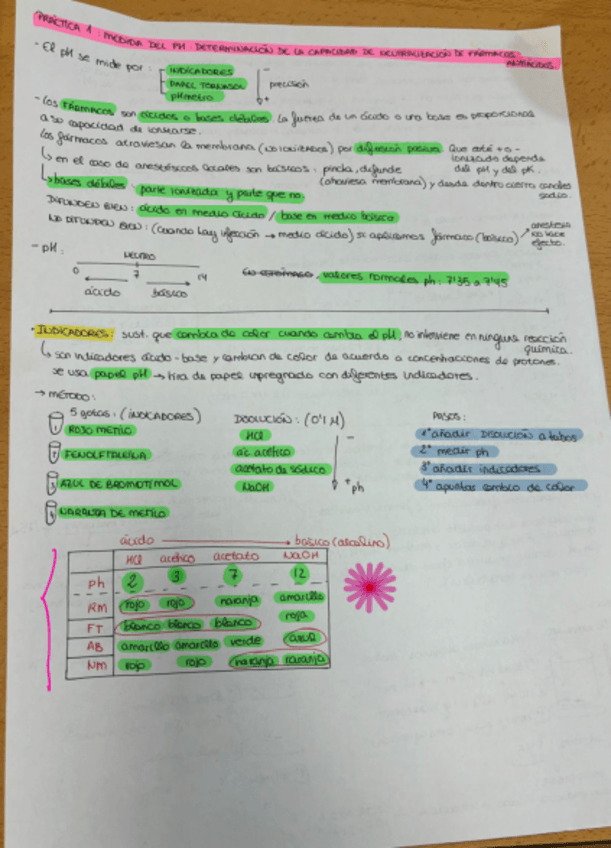 PRÁCTICA 1: MEDIDA DEL PH: DETERMINACIÓN DE LA CAPACIDAD DE NEUTRALIZACIÓN DE FÁRMACOS ANTIÁCIDOS.
- El pH se mide por: INDICADORES -
PAPEL TORNASOL precisión
pHmetro +
- Los FÁRMACOS son ácidos o bases débiles. La fuerza de un ácido o una base es proporcional
a su capacidad de ionizarse.
Los fármacos atraviesan la membrana (no ionizados) por difusión pasiva. Que esté + o -
ionizado dependa del pH y del pK.
↳ en el caso de anestésicos locales son básicos: pincha, difunde
(atraviesa membrana) y desde dentro cierra canales sodio.
↳ bases débiles: parte ionizada y parte que no.
DIFUNDEN BIEN: ácido en medio ácido / base en medio básico
NO DIFUNDEN BIEN: (cuando hay infección → medio ácido) si aplicamos fármaco (básico) ↗ anestesia no hace efecto.
- pH: NEUTRO
0 7 14
ácido básico
valores normales ph: 7'35 a 7'45
- INDICADORES: sust. que cambia de color cuando cambia el pH, no interviene en ninguna reacción química.
↳ son indicadores ácido-base y cambian de color de acuerdo a concentraciones de protones.
se usa papel pH → tira de papel impregnado con diferentes indicadores.
→ MÉTODO:
5 gotas: (INDICADORES) DISOLUCIÓN: (0'1 M) PASOS:
1 ROJO METILO HCl - 1º añadir DISOLUCIÓN a tubos
2 FENOLFTALEÍNA ác acético 2º medir ph
3 AZUL DE BROMOTIMOL acetato de sódico 3º añadir indicadores
4 NARANJA DE METILO NaOH + ph 4º apuntar cambio de color
ácido → básico (alcalino)
HCl acético acetato NaOH
Ph 2 3 7 12
RM rojo rojo naranja amarillo
FT blanco blanco blanco rosa
AB amarillo amarillo verde azul
NM rojo rojo naranja naranja